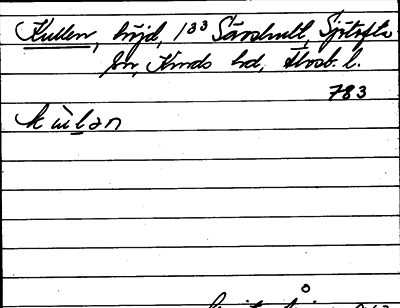 Kullen, höjd, 1³³ Sävshult, Sjötofta
sn, Kinds hd, Älvsb. l.
783
kùlən